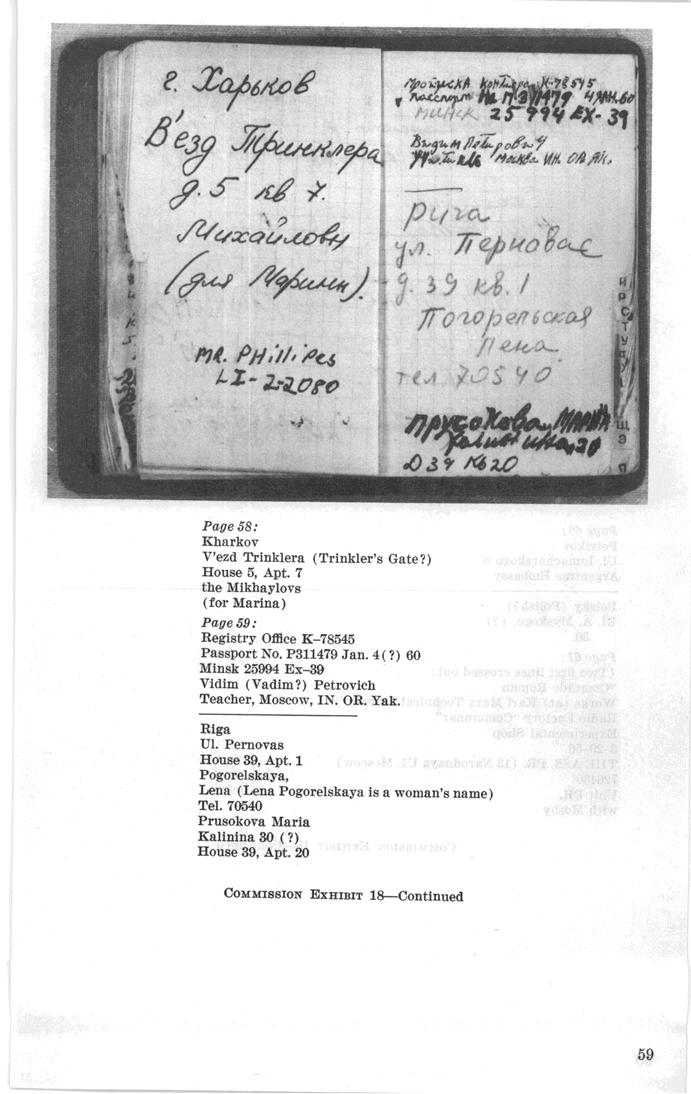 г. Харьков
В'езд Тринклера
д. 5 кв 7.
Михайловы
(для Марини).
MR. PHillipes
LI-2-2080
К-78545
Пасспорт № П311479 4 ЯН. 60
МИНСК 25994 EX-39
Видим Петрович
москва ИН. ОR. ЯК.
Рига
ул. Перновас
д. 39 кв. 1
Погорельская
Лена
тел 70540
Прусокова МАРИЯ
Д 39 Кв 20
И
Р
С
Т
У
Щ
Э
Я
Page 58:
Kharkov
V'ezd Trinklera (Trinkler's Gate?)
House 5, Apt. 7
the Mikhaylovs
(for Marina)
Page 59:
Registry Office K–78545
Passport No. P311479 Jan. 4(?) 60
Minsk 25994 Ex–39
Vidim (Vadim?) Petrovich
Teacher, Moscow, IN. OR. Yak.
Riga
Ul. Pernovas
House 39, Apt. 1
Pogorelskaya,
Lena (Lena Pogorelskaya is a woman's name)
Tel. 70540
Prusokova Maria
Kalinina 30 (?)
House 39, Apt. 20
COMMISSION EXHIBIT 18—Continued
59